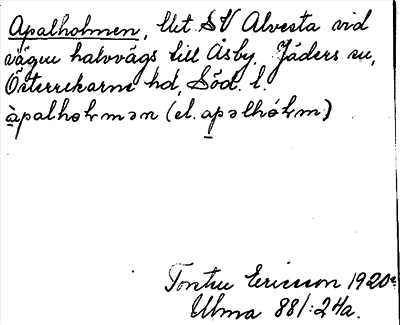 Apalholmen, litet SV Alvesta vid
vägen halvvägs till Åsby, Jäders sn,
Österrekarne hd, Söd. l.
àpalholmən (el. apəlhólm)
Torsten Ericsson 1920
Ulma 88/: 24a.